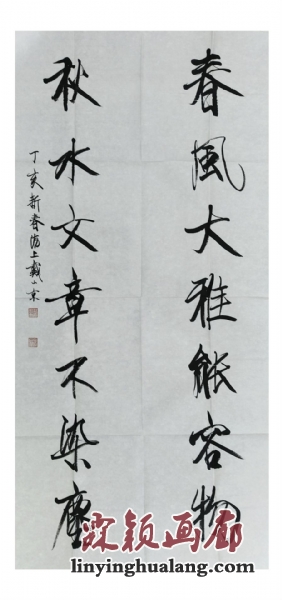 春風大雅能容物
秋水文章不染塵
丁亥新春海上戴小京
霖颖画廊
linyinghualang.com